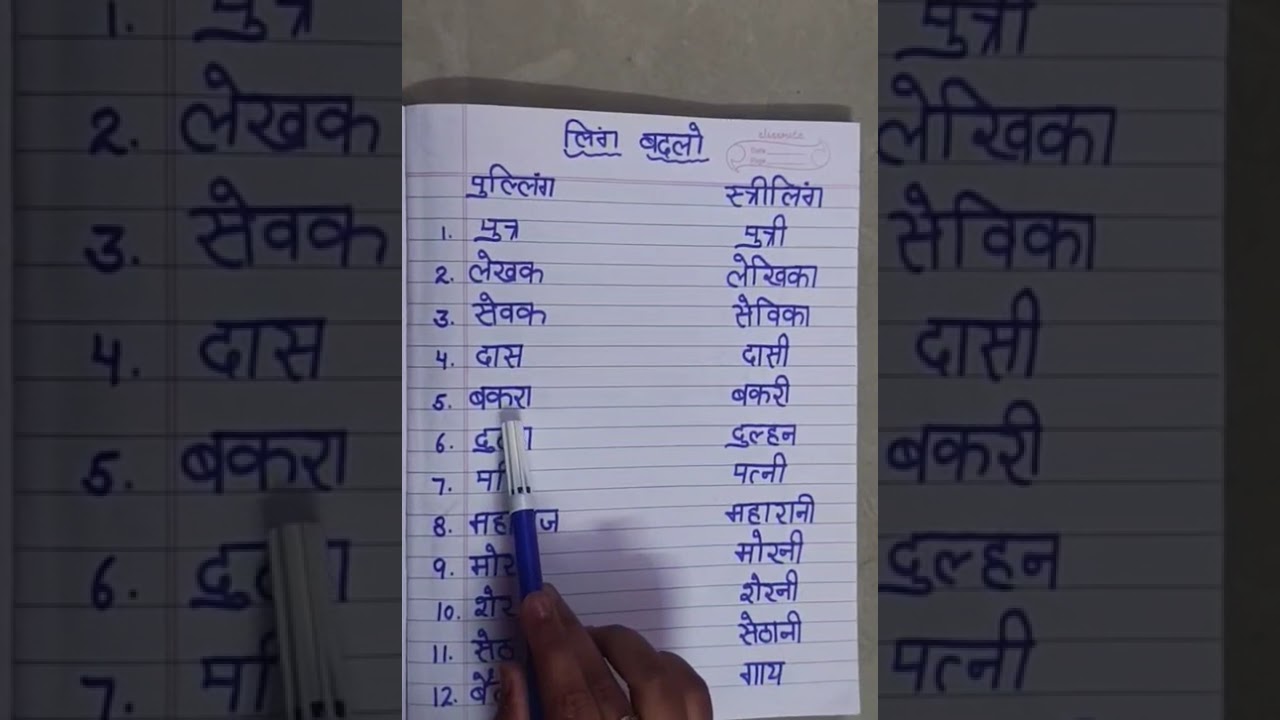 लिंग बदलो
classmate
Date
Page
पुल्लिंग स्त्रीलिंग
1. पुत्र पुत्री
2. लेखक लेखिका
3. सेवक सेविका
4. दास दासी
5. बकरा बकरी
6. दुल्हन
7. पत्नी
8. महारानी
9. मोर मोरनी
10. शेर शेरनी
11. सेठानी
12. गाय